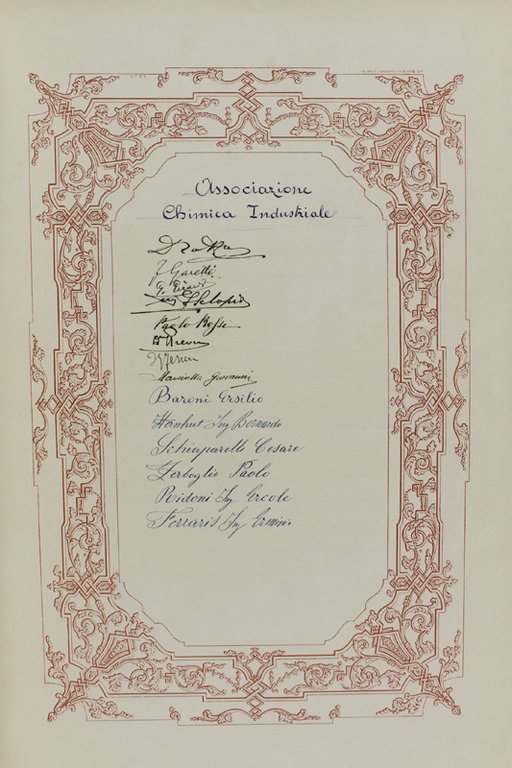 Associazione
Chimica Industriale
Garetti
Ing Sclopis
Paolo Rossi
Giovanni
Baroni Ersilio
Hernhut Ing Bernardo
Schiaparelli Cesare
Zerboglio Paolo
Ridoni Ing Ercole
Ferraris Ing Erminio